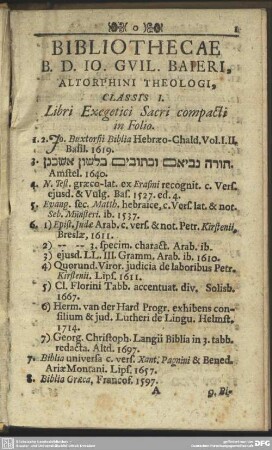 o
1
BIBLIOTHECAE
B. D. IO. GVIL. BAIERI,
ALTORPHINI THEOLOGI,
CLASSIS I.
Libri Exegetici Sacri compacti
in Folio.
1. 2. Jo. Buxtorfii Biblia Hebræo-Chald. Vol. I. II.
Basil. 1619.
3. תורה נביאים וכתובים בלשון אשכנז
Amstel. 1640.
4. N. Test. græco-lat. ex Erasmi recognit. c. Vers.
ejusd. & Vulg. Bas. 1527. ed. 4.
5. Evang. sec. Matth. hebraice, c. Vers. lat. & not.
Seb. Münsteri. ib. 1537.
6. 1) Epist. Judæ Arab. c. vers. & not. Petr. Kirstenii,
Breslæ, 1611.
2) -- -- 3. specim. charact. Arab. ib.
3) ejusd. LL. III. Gramm. Arab. ib. 1610.
4) Quorund. Viror. judicia de laboribus Petr.
Kirstenii. Lips. 1611.
5) Cl. Florini Tabb. accentuat. div. Solisb.
1667.
6) Herm. van der Hard Progr. exhibens con-
silium & jud. Lutheri de Lingu. Helmst.
1714.
7) Georg. Christoph. Langii Biblia in 3. tabb.
redacta. Altd. 1697.
7. Biblia universa c. vers. Xant. Pagnini & Bened.
Ariæ Montani. Lips. 1657.
8. Biblia Græca, Francof. 1597.
A
9. Bi-